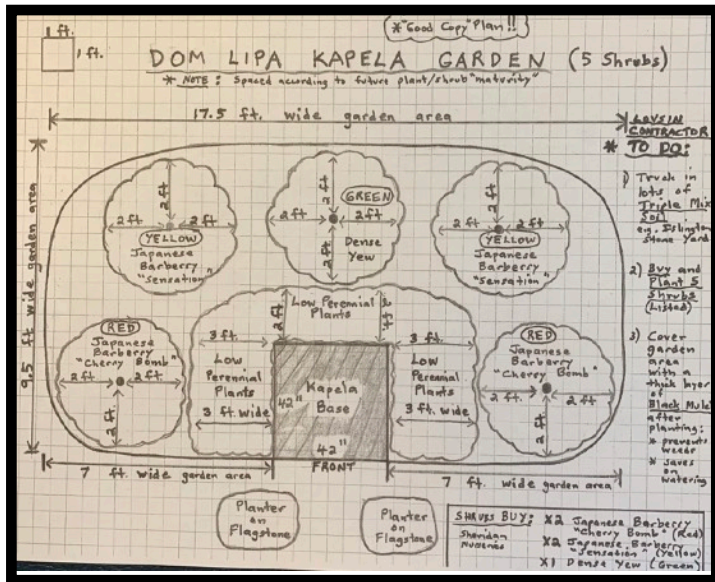 * "Good Copy" Plan!!
1 ft.
1 ft.
DOM LIPA KAPELA GARDEN (5 Shrubs)
* NOTE: Spaced according to future plant/shrub "maturity"
17.5 ft. wide garden area
9.5 ft wide garden area
2 ft
2 ft
2 ft
YELLOW
Japanese
Barberry
"Sensation"
2 ft
GREEN
2 ft
2 ft
Dense
Yew
2 ft
2 ft
2 ft
2 ft
YELLOW
Japanese
Barberry
"Sensation"
RED
Japanese
Barberry
"Cherry Bomb"
2 ft
2 ft.
2 ft.
2 ft
Low Perennial
Plants
2 ft
3 ft.
Low
Perennial
Plants
3 ft. wide
Kapela
Base
42"
42"
FRONT
3 ft.
Low
Perennial
Plants
3 ft. wide
RED
Japanese
Barberry
"Cherry Bomb"
2 ft.
2 ft.
2 ft.
7 ft. wide garden area
7 ft. wide garden area
Planter
on
Flagstone
Planter
on
Flagstone
CONTRACTOR
* TO DO:
1) Truck in
lots of
Triple Mix
Soil
e.g. Islington
Stone Yard
2) Buy and
Plant 5
Shrubs
(Listed)
3) Cover
garden
area
with a
thick layer
of
Black Mulch
after
planting:
* prevents
weeds
* saves
on
watering
SHRUBS BUY:
Sheridan
Nurseries
X2 Japanese Barberry
"Cherry Bomb" (Red)
X2 Japanese Barberry
"Sensation" (Yellow)
X1 Dense Yew (Green)